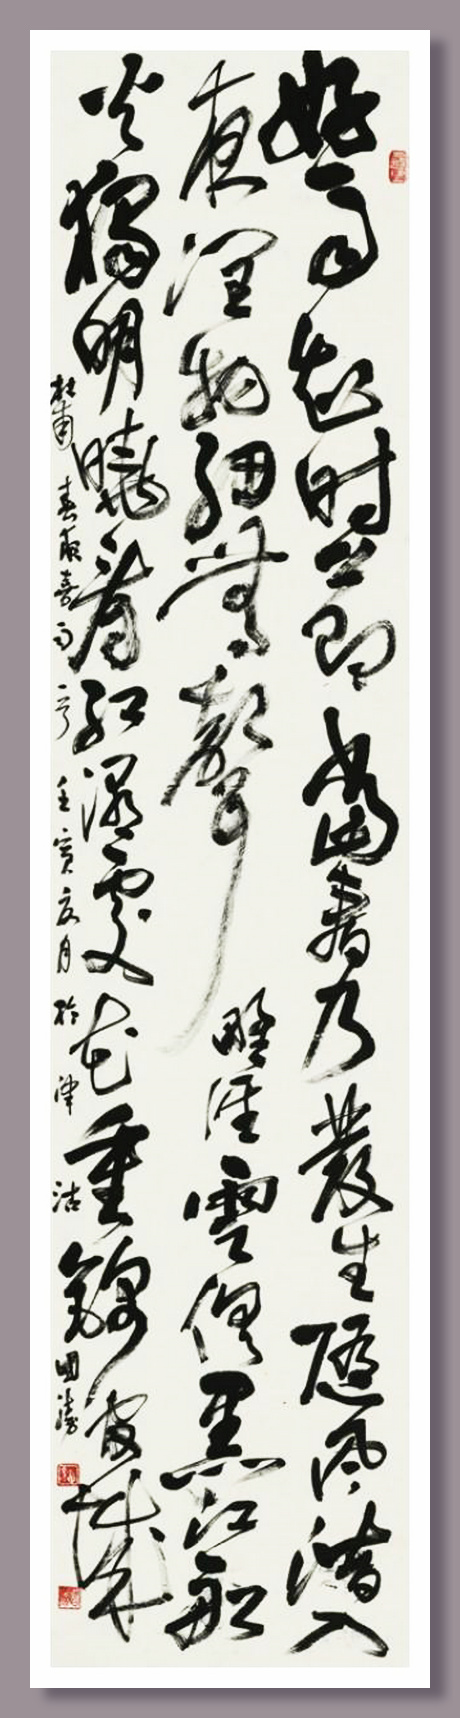 好雨知时節當春乃發生隨風潛入
夜潤物細無聲野徑雲俱黑江船
火獨明曉看紅濕處花重錦官城
杜甫春夜喜雨一首壬寅夏月於津沽國濤